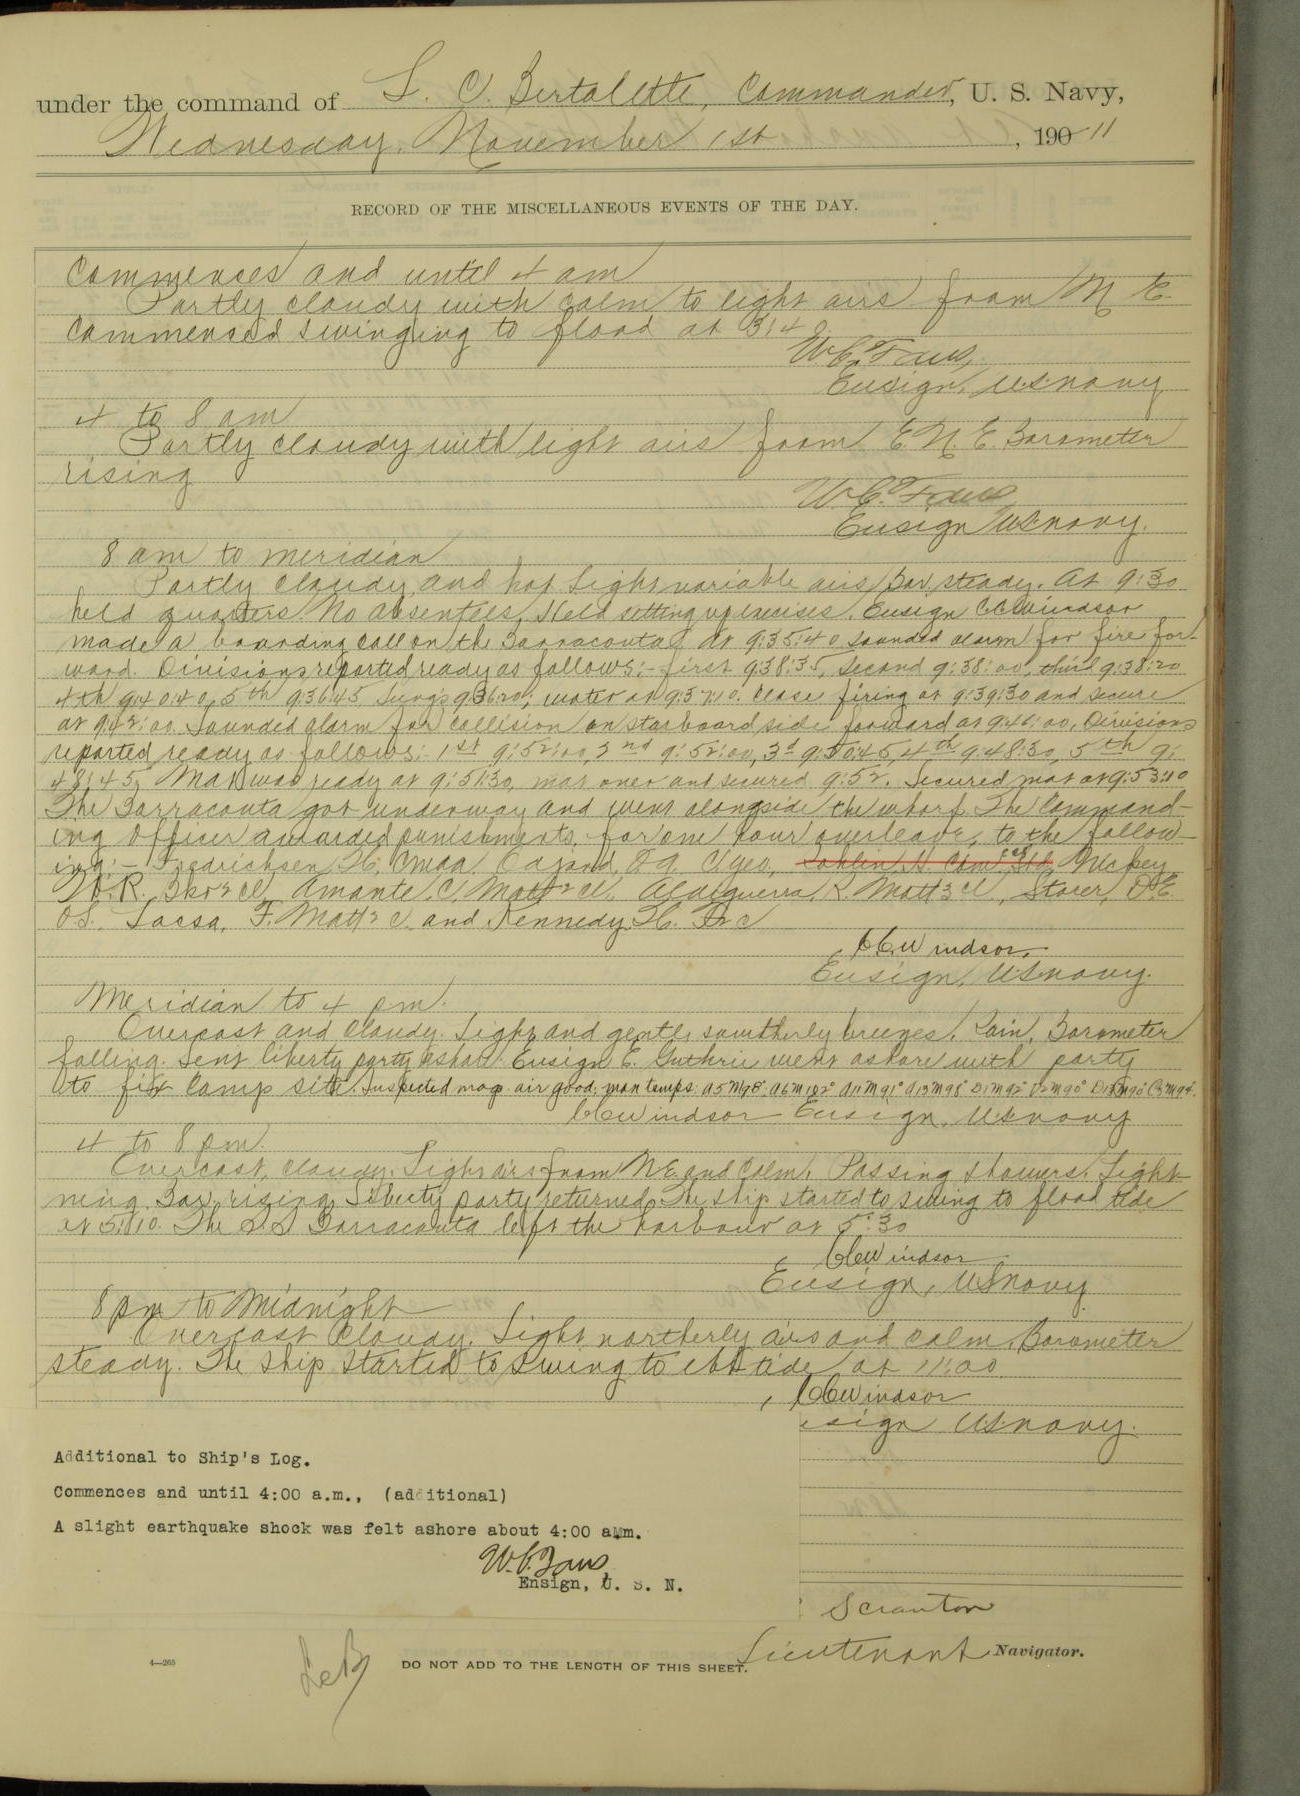 under the command of L. C. Bertolette, Commander, U. S. Navy,
Wednesday, November 1st, 19011
RECORD OF THE MISCELLANEOUS EVENTS OF THE DAY.
Commences and until 4 am
Partly cloudy with calm to light airs from N E.
Commenced swinging to flood at 3:40.
W.C. Faus,
Ensign, U.S. Navy
4 to 8 am
Partly cloudy with light airs from E.N.E. Barometer
rising
W.C. Faus
Ensign U.S. Navy.
8 am to meridian
Partly cloudy and hot. Light variable airs, Bar. steady. At 9:30
held quarters No absentees. Held setting up exercises. Ensign C.C. Windsor
made a boarding call on the Barracouta. At 9:35:40 sounded alarm for fire for-
ward. Divisions reported ready as follows:- first 9:38:35, Second 9:38:00, third 9:38:20
4th 9:40:40, 5th 9:36:45 9:36:20; water at 9:37:10. Cease firing at 9:39:30 and secure
at 9:42:00. Sounded alarm for collision on starboard side forward at 9:46:00. Divisions
reported ready as follows: 1st 9:52:00, 2nd 9:52:00, 3d 9:50:45, 4th 9:48:30, 5th 9:
48:45. Mat was ready at 9:51:30, mat over and secured 9:52. Secured mat at 9:53:10
The Barracouta got underway and went alongside the wharf. The Command-
ing Officer awarded punishments, for one hour overleave, to the follow-
ing:- Fredrichsen, H. CMAA. Yeo, Hickey
W.R. Amante, C. Matt 2 cl, R. Matt 3 cl, Storer, D.E.
O.S. Sassa, F. Matt 2 c. and Kennedy, H. F 2 c
C.C. Windsor,
Ensign, U.S. Navy.
Meridian to 4 pm.
Overcast and cloudy. Light and gentle southerly breezes. Rain. Barometer
falling. Sent liberty party ashore. Ensign E. Guthrie went ashore with party
to fix camp site. Inspected mags. air good, max temps. A5M98° A6M102° A11M91° A13M98° D1M92° D2M90° D13M90° C3M94°.
C.C. Windsor Ensign, U.S. Navy
4 to 8 pm.
Overcast, cloudy. Light airs from NE and Calm. Passing showers. Light-
ning. Bar. rising. Liberty party returned. The ship started to swing to flood tide
at 5:10. The S S Barracouta left the harbour at 5:30
C.C. Windsor
Ensign, U.S. Navy
8 pm to Midnight
Overcast cloudy. Light northerly airs and calm. Barometer
steady. The ship started to swing to ebb tide at 11:00
C.C. Windsor
sign U.S. Navy.
Additional to Ship's Log.
Commences and until 4:00 a.m., (additional)
A slight earthquake shock was felt ashore about 4:00 a.m.
W.C. Faus
Ensign, U. S. N.
Scranton
Lieutenant Navigator.
4—265
LCB
DO NOT ADD TO THE LENGTH OF THIS SHEET.